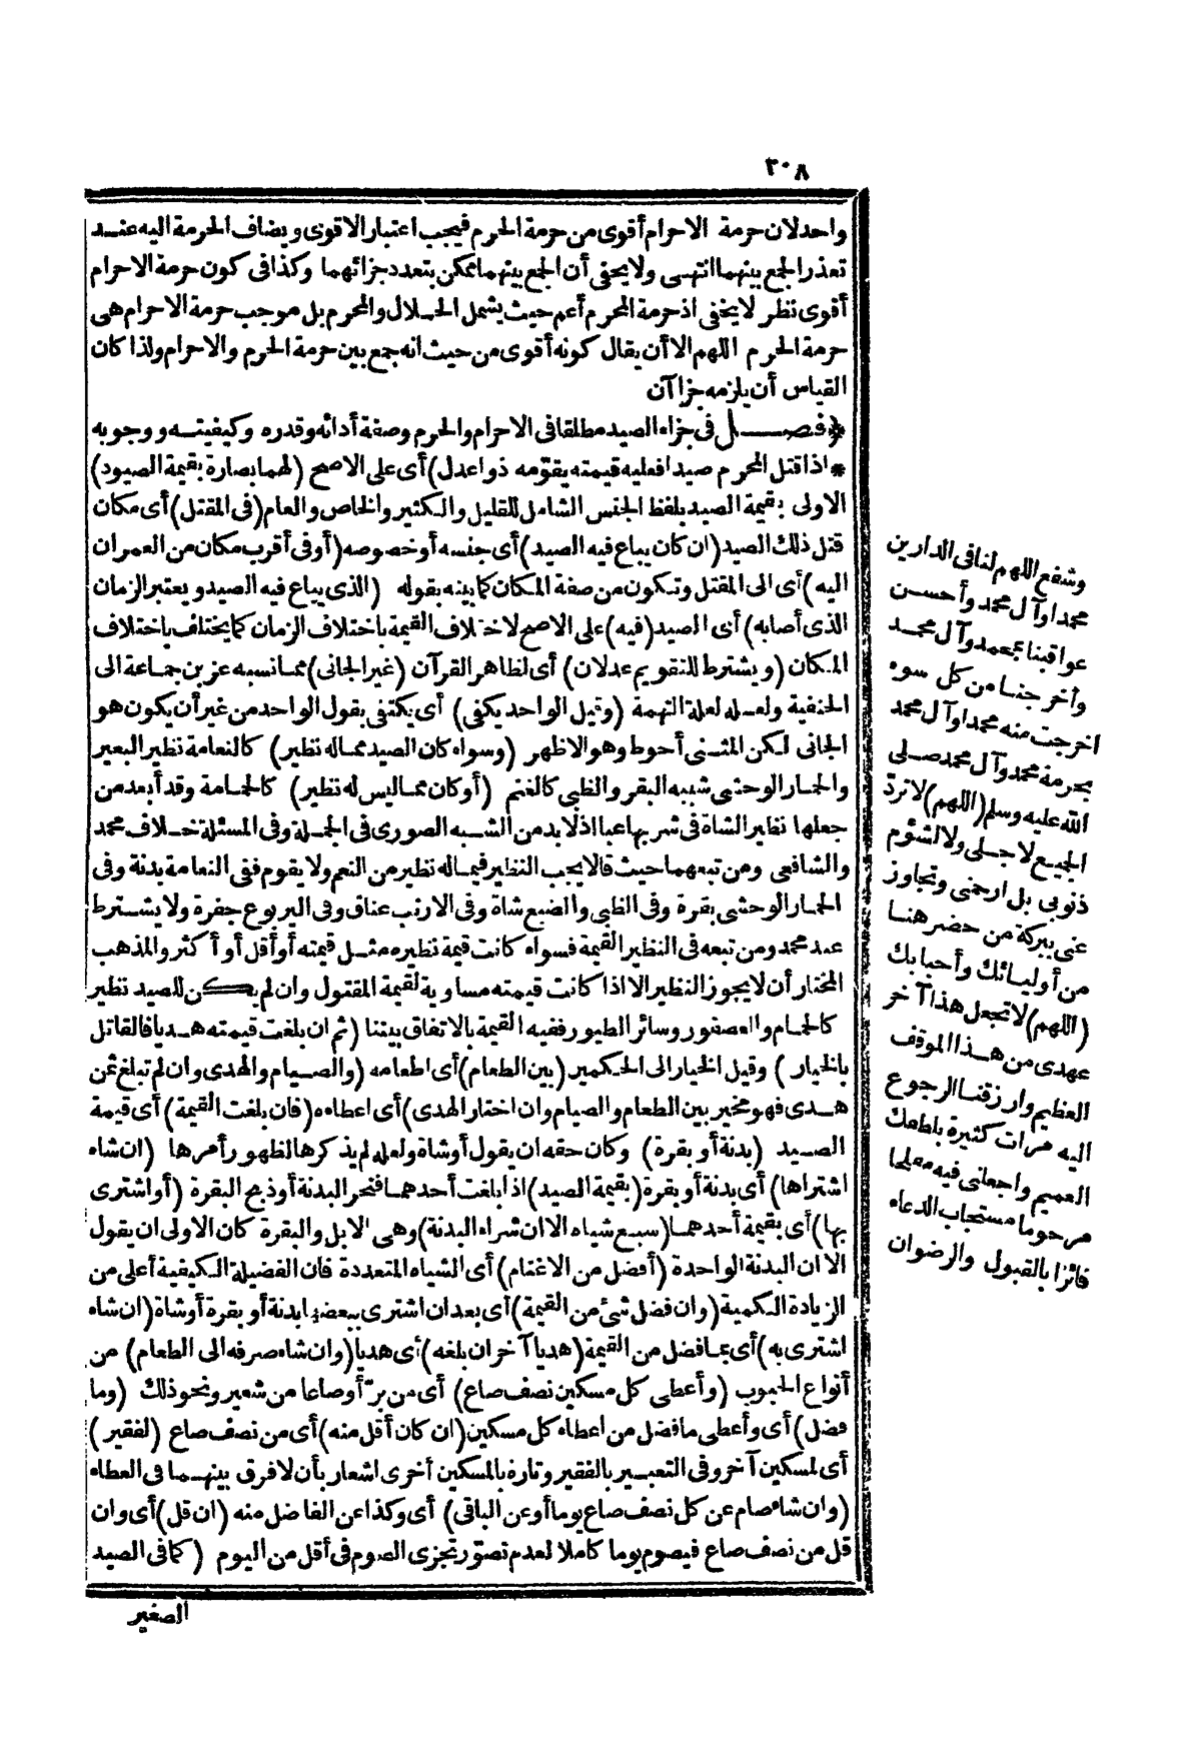 ٣٠٨
واحد لان حرمة الاحرام أقوى من حرمة الحرم فيجب اعتبار الاقوى ويضاف الحرمة اليه عند
تعذر الجمع بينهما انتهى ولا يخفى أن الجمع بينهما ممكن بتعدد جزائهما وكذا فى كون حرمة الاحرام
أقوى نظر لا يخفى اذ حرمة المحرم أعم حيث يشمل الحلال والمحرم بل موجب حرمة الاحرام هى
حرمة الحرم اللهم الا أن يقال كونه أقوى من حيث انه جمع بين حرمة الحرم والاحرام ولذا كان
القياس أن يلزمه جزا آن
﴿فصل فى جزاء الصيد مطلقا فى الاحرام والحرم وصفة أدائه وقدره وكيفيته ووجوبه
* اذا قتل المحرم صيدا فعليه قيمته يقوّمه ذوا عدل) أى على الاصح (لهما بصارة بقيمة الصيود)
الاولى بقيمة الصيد بلفظ الجنس الشامل للقليل والكثير والخاص والعام (فى المقتل) أى مكان
قتل ذلك الصيد (ان كان يباع فيه الصيد) أى جنسه أو خصوصه (أو فى أقرب مكان من العمران
اليه) أى الى المقتل وتكون من صفة المكان كما بينه بقوله (الذى يباع فيه الصيد ويعتبر الزمان
الذى أصابه) أى الصيد (فيه) على الاصح لاختلاف القيمة باختلاف الزمان كما يختلف باختلاف
المكان (ويشترط للتقويم عدلان) أى لظاهر القرآن (غير الجانى) مما نسبه عز بن جماعة الى
الحنفية ولعله لعلة التهمة (وقيل الواحد يكفى) أى يكتفى بقول الواحد من غير أن يكون هو
الجانى لكن المثنى أحوط وهو الاظهر (وسواء كان الصيد مما له نظير) كالنعامة نظير البعير
والحمار الوحشى شبيه البقر والظبى كالغنم (أو كان مما ليس له نظير) كالحمامة وقد أبعد من
جعلها نظير الشاة فى شربها عبا اذ لا بد من الشبه الصورى فى الجملة وفى المسئلة خلاف محمد
والشافعى ومن تبعهما حيث قالا يجب النظير فيما له نظير من النعم ولا يقوم ففى النعامة بدنة وفى
الحمار الوحشى بقرة وفى الظبى والضبع شاة وفى الارنب عناق وفى اليربوع جفرة ولا يشترط
عند محمد ومن تبعه فى النظير القيمة فسواء كانت قيمة نظيره مثل قيمته أو أقل أو أكثر والمذهب
المختار أن لا يجوز النظير الا اذا كانت قيمته مساوية لقيمة المقتول وان لم يكن للصيد نظير
كالحمام والعصفور وسائر الطيور ففيه القيمة بالاتفاق بيننا (ثم ان بلغت قيمته هديا فالقاتل
بالخيار) وقيل الخيار الى الحكمين (بين الطعام) أى اطعامه (والصيام والهدى وان لم تبلغ ثمن
هدى فهو مخير بين الطعام والصيام وان اختار الهدى) أى اعطاءه (فان بلغت القيمة) أى قيمة
الصيد (بدنة أو بقرة) وكان حقه ان يقول أو شاة ولعله لم يذكرها لظهور أمرها (ان شاء
اشتراها) أى بدنة أو بقرة (بقيمة الصيد) اذا بلغت أحدهما فنحر البدنة أو ذبح البقرة (أو اشترى
بها) أى بقيمة أحدهما (سبع شياه الا ان شراء البدنة) وهى الابل والبقرة كان الاولى ان يقول
الا ان البدنة الواحدة (أفضل من الاغنام) أى الشياه المتعددة فان الفضيلة الكيفية أعلى من
الزيادة الكمية (وان فضل شئ من القيمة) أى بعد ان اشترى ببعضها بدنة أو بقرة أو شاة (ان شاء
اشترى به) أى بما فضل من القيمة (هديا آخر ان بلغه) أى هديا (وان شاء صرفه الى الطعام) من
أنواع الحبوب (وأعطى كل مسكين نصف صاع) أى من برّ أو صاعا من شعير ونحو ذلك (وما
فضل) أى وأعطى ما فضل من اعطاء كل مسكين (ان كان أقل منه) أى من نصف صاع (لفقير)
أى لمسكين آخر وفى التعبير بالفقير وتارة بالمسكين أخرى اشعار بأن لا فرق بينهما فى العطاء
(وان شاء صام عن كل نصف صاع يوما أو عن الباقى) أى وكذا عن الفاضل منه (ان قل) أى وان
قل من نصف صاع فيصوم يوما كاملا لعدم تصوّر تجزى الصوم فى أقل من اليوم (كما فى الصيد
الصغير
وشفع اللهم لنا فى الدارين
محمدا وآل محمد وأحسن
عواقبنا بمحمد وآل محمد
وأخرجنا من كل سوء
اخرجت منه محمدا وآل محمد
بحرمة محمد وآل محمد صلى
الله عليه وسلم (اللهم) لا تردّ
الجميع لاجلى ولا لشؤم
ذنوبى بل ارحمنى وتجاوز
عنى ببركة من حضر هنا
من أوليائك وأحبابك
(اللهم) لا تجعل هذا آخر
عهدى من هذا الموقف
العظيم وارزقنا الرجوع
اليه مرات كثيرة بلطفك
العميم واجعلنى فيه مفلحا
مرحوما مستجاب الدعاء
فائزا بالقبول والرضوان